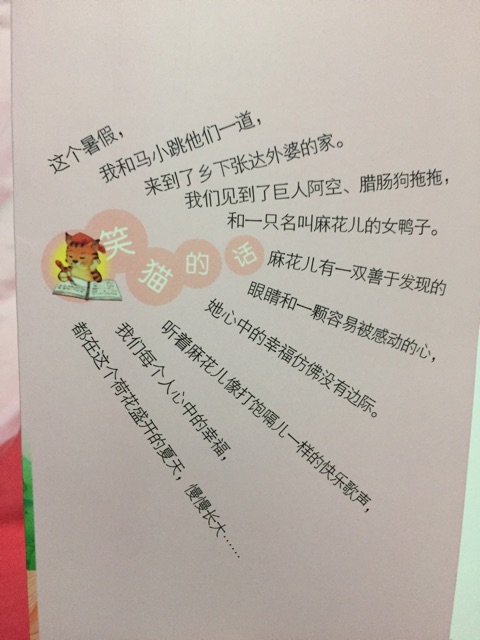 这个暑假，
我和马小跳他们一道，
来到了乡下张达外婆的家。
我们见到了巨人阿空、腊肠狗拖拖，
和一只名叫麻花儿的女鸭子。
笑猫的话
麻花儿有一双善于发现的
眼睛和一颗容易被感动的心，
她心中的幸福仿佛没有边际。
听着麻花儿像打饱嗝儿一样的快乐歌声，
我们每个人心中的幸福，
都在这个荷花盛开的夏天，慢慢长大……